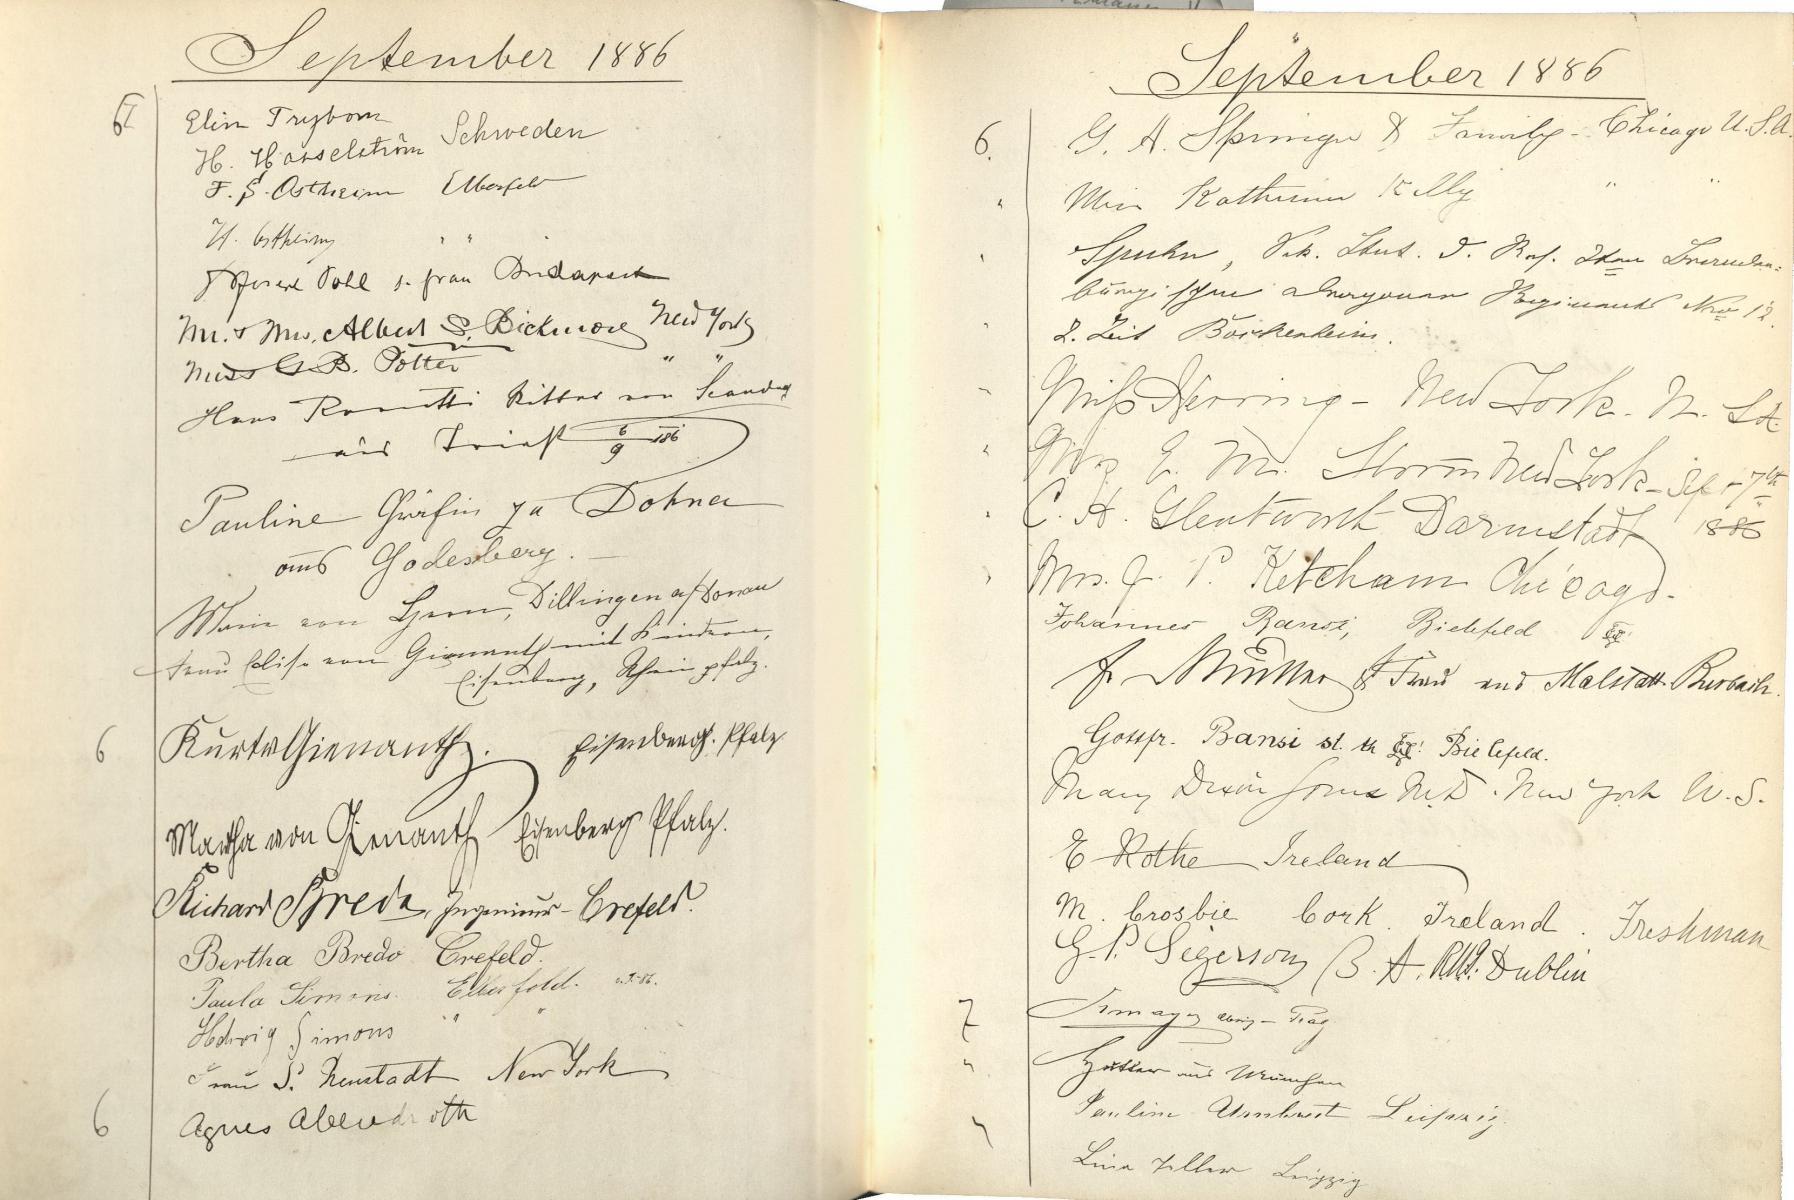 September 1886
6
Elin Trybom
H. Hasselström Schweden
F. S. Ostheim Elberfeld
H. Ostheim " "
Pohl u. frau Budapest
Mr. & Mrs. Albert S. Bickmore New York
Miss G. B. Potter " "
Hans Ritter von
aus Triest 6/9 186
Pauline Gräfin zu Dohna
aus Godesberg.
Marie von Dillingen a/Donau
Frau Elise von Gienanth mit Kindern,
Eisenberg, Rheinpfalz.
6 Kurt v Gienanth. Eisenberg. Pfalz
Martha von Gienanth Eisenberg Pfalz.
Richard Breda, Ingenieur - Crefeld.
Bertha Breda Crefeld.
Paula Simons. Elberfeld.
Hedwig Simons " "
Frau S. Neustadt New York
6 Agnes Abendroth
September 1886
6. G. A. Springer & Family - Chicago U.S.A.
" Miss Katherine Kelly " "
" Spuhn,
Regiments Nro 12.
" z. Zeit Bockenheim.
" Miss Herring - New York. N. Y.
" Mrs E. M. Storm New York - Sept 7th
" C. H. Glentworth Darmstadt 1886
" Mrs. J. P. Ketcham Chicago.
Johannes Bansi, Bielefeld
fr. Müller & Frau aus Malstatt Burbach.
Gottfr. Bansi Bielefeld.
Mary Dixon Jones M.D. New York U.S.
E Rothe Ireland
M. Crosbie Cork. Ireland. Freshman
G. P. Sigerson B. A. Dublin
7 Prag
" aus München
Pauline Leipzig.
" Lina Leipzig